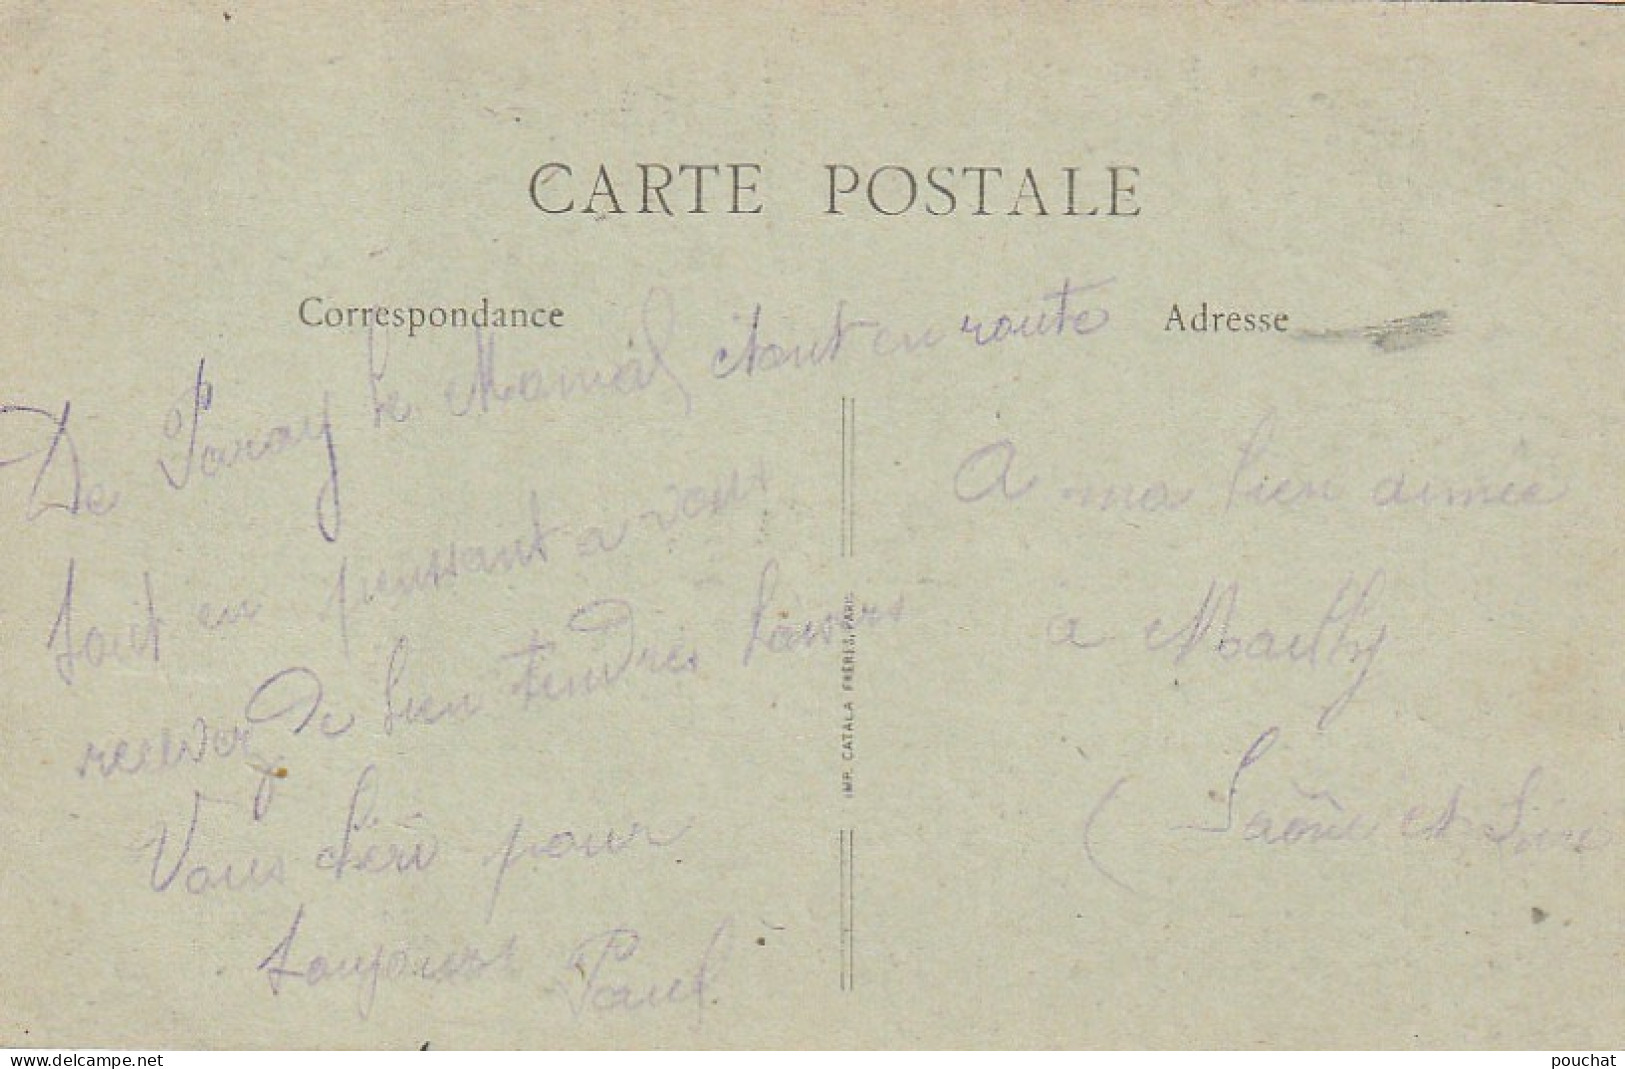 CARTE POSTALE
Correspondance
Adresse
De Paray le Monial, étant en route
tout en penssant a vous
recever De bien tendres baisers
Vous pour
toujours Paul
A ma bien aimée
a Mailly
(Saône et Loire
IMP. CATALA FRÈRES, PARIS
www.delcampe.net
pouchat